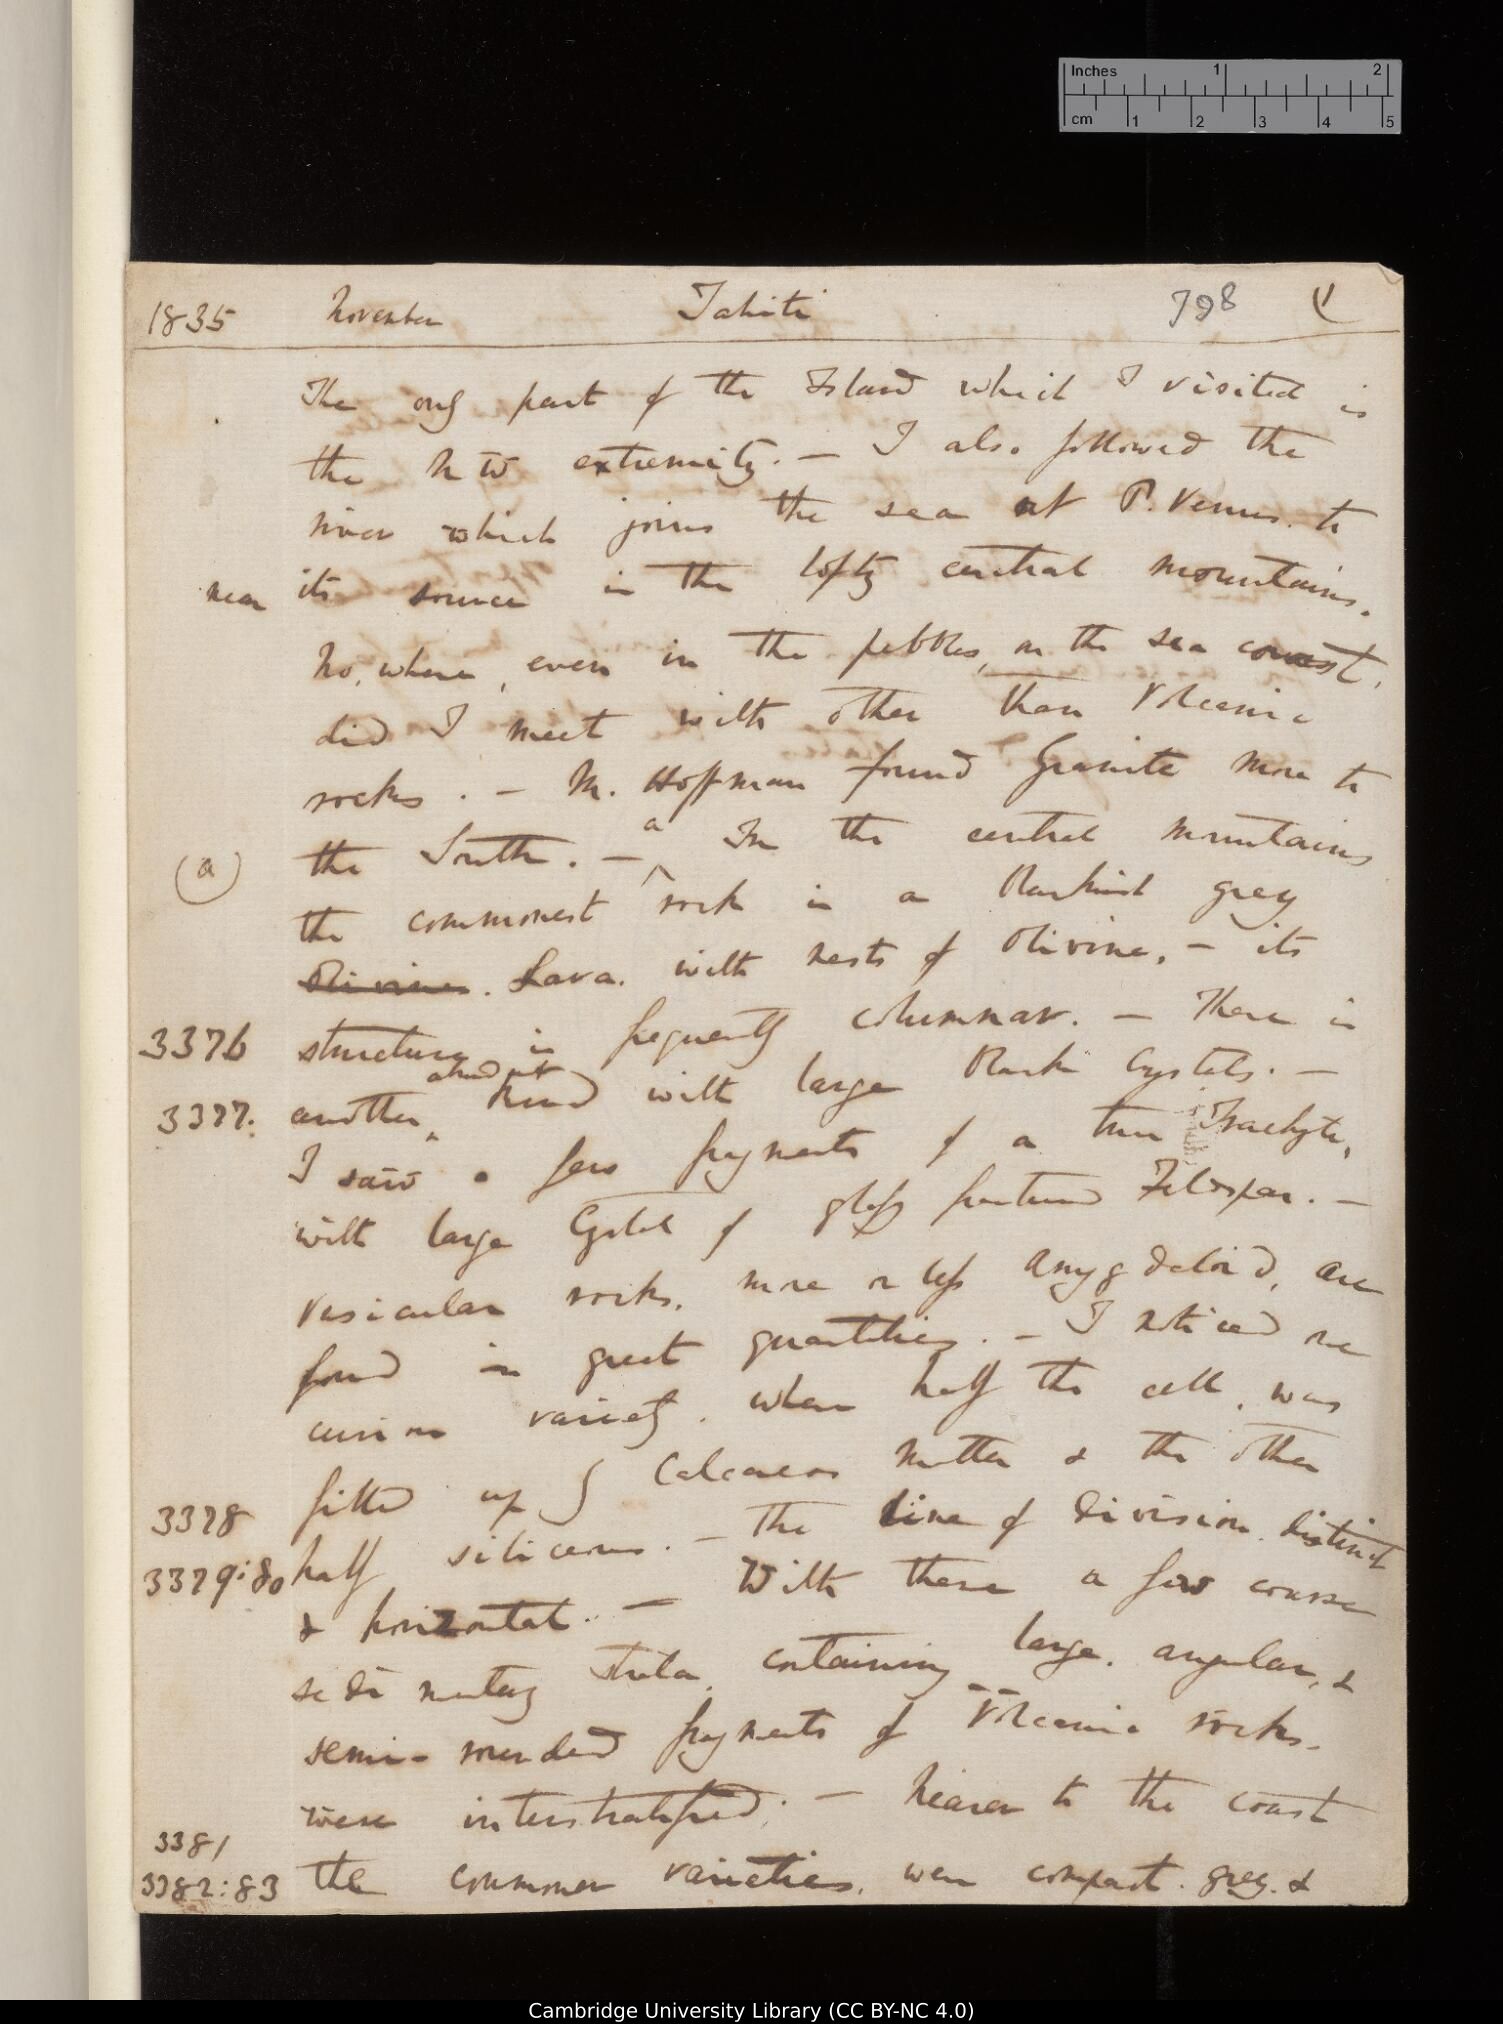 Inches 1 2
cm 1 2 3 4 5
1835 November Tahiti 798 (1
The only part of the Island which I visited is
the NW extremity. — I also followed the
river which joins the sea at P. Venus. to
near its source in the lofty central mountains.
No, where, even in the pebbles, on the sea coast,
did I meet with other than Volcanic
rocks. — M. Hoffman found Granite more to
(a) the South. — a In the central mountains
the commonest rock is a blackish grey
Olivine. Lava. with nests of Olivine, — its
3376 structure is frequently columnar. — There is
abundant
3377: another, kind with large black Crystals. —
I saw a few fragments of a true Trachyte,
with large Crystal of glassy fractured Feldspar. —
Vesicular rocks, more or less Amygdaloid, are
found in great quantities. — I noticed one
curious variety. where half the cell, was
filled up by Calcareous matter & the other
3378 half siliceous. — The line of division distinct
3379:80 & horizontal. — With these a few coarse
sedimentary strata, containing large, angular, &
semi-rounded fragments of Volcanic rocks,
were interstratified. — Nearer to the coast
3381
3382:83 the commoner varieties, were compact. grey. &
Cambridge University Library (CC BY-NC 4.0)